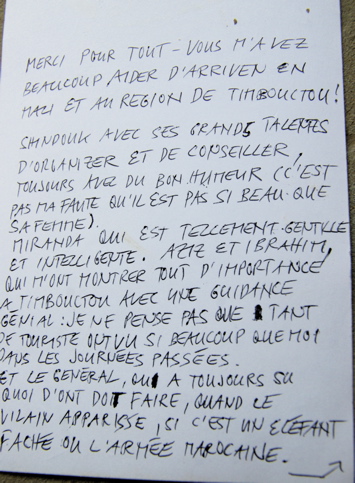 MERCI POUR TOUT - VOUS M'AVEZ
BEAUCOUP AIDER D'ARRIVEN EN
MALI ET AU REGION DE TIMBOUCTOU!
SHINDOUK AVEC SES GRANDS TALENTS
D'ORGANIZER ET DE CONSEILLER,
TOUJOURS AVEZ DU BON HUMEUR (C'EST
PAS MA FAUTE QU'IL EST PAS SI BEAU QUE
SA FEMME).
MIRANDA QUI EST TELLEMENT GENTILLE
ET INTELLIGENTE. AZIZ ET IBRAHIM,
QUI M'ONT MONTRER TOUT D'IMPORTANCE
A TIMBOUCTOU AVEC UNE GUIDANCE
GENIAL: JE NE PENSE PAS QUE TANT
DE TOURISTE ONT VU SI BEAUCOUP QUE MOI
DANS LES JOURNÉES PASSÉES.
ET LE GENERAL, QUI A TOUJOURS SU
QUOI D'ONT DOIT FAIRE, QUAND LE
VILAIN APPARISSE, SI C'EST UN ELEFANT
FACHE OU L'ARMÉE MAROCAINE.